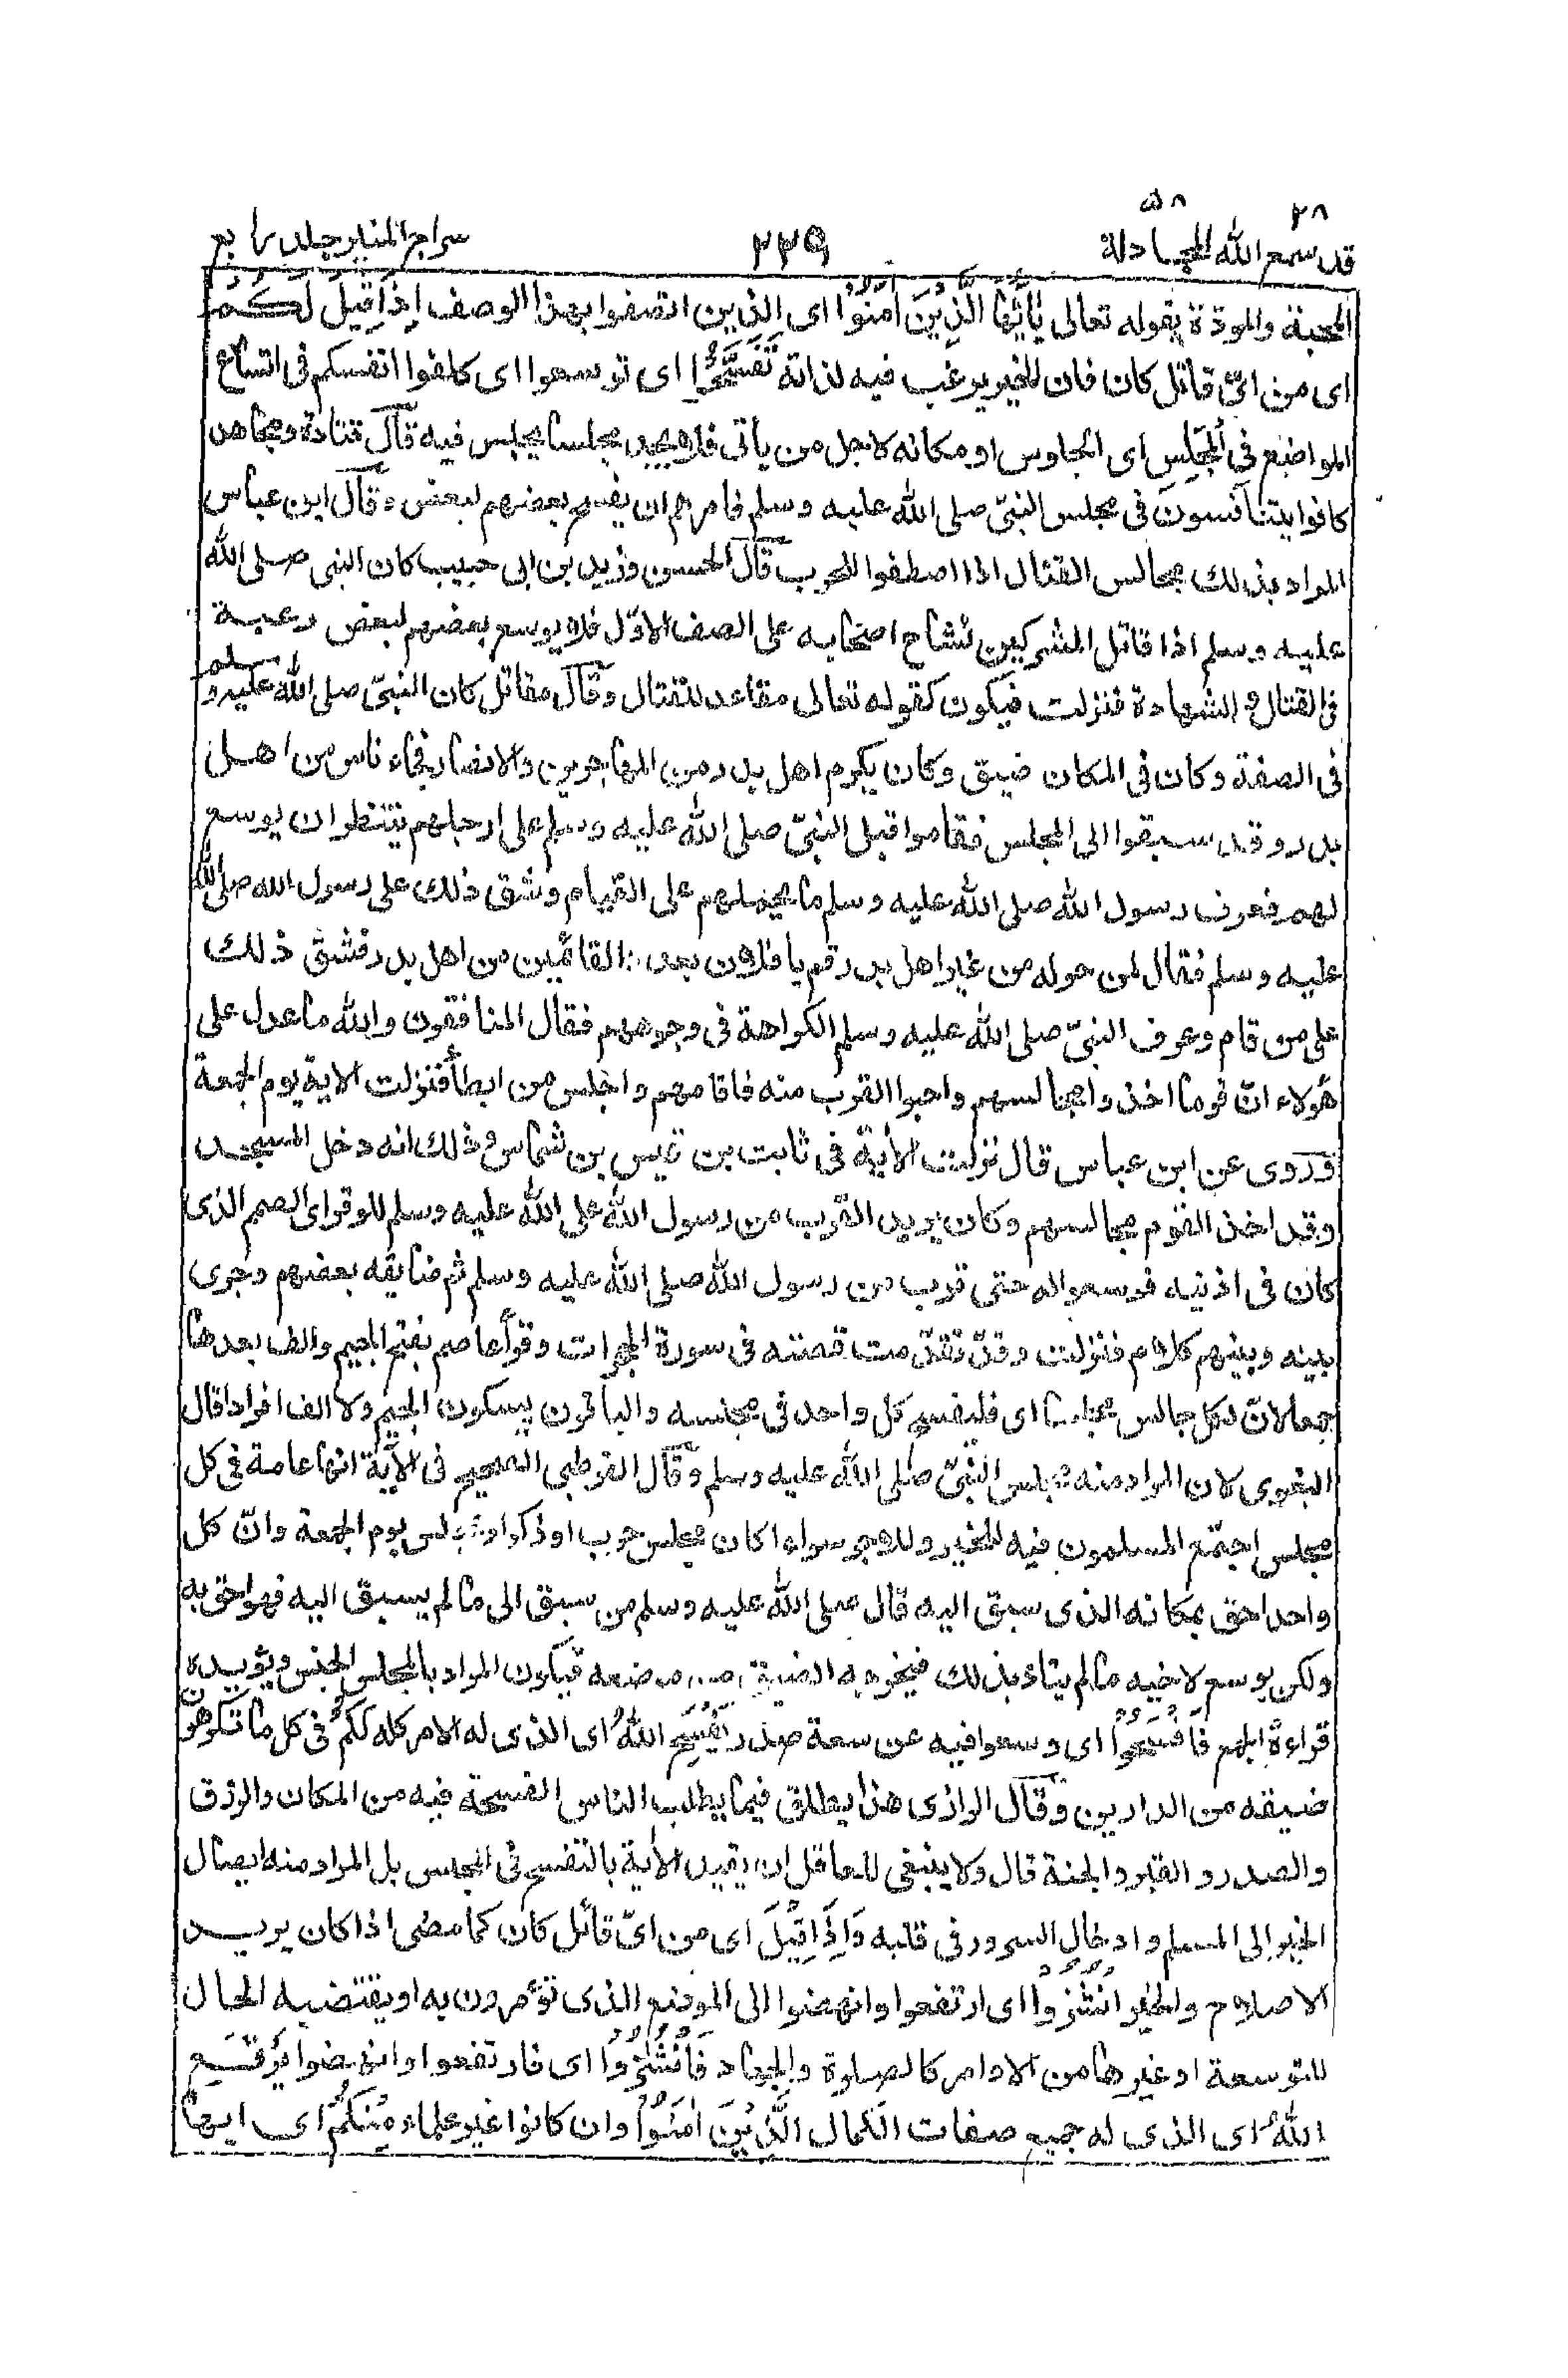 قد سمع الله ٢٨ المجادلة ٥٨
٢٣٩
سراج المنير جلد رابع
المحبة والمودة بقوله تعالى يٰاَيُّهَا الَّذِيْنَ اٰمَنُوْا اى الذين اتصفوا بهذا الوصف اِذَا قِيْلَ لَكُمْ
اى من اىّ قائل كان فان الخير يرغب فيه لذاته تَفَسَّحُوْا اى توسعوا اى كلفوا انفسكم فى اتساع
المواضع فِى الْمَجٰلِسِ اى الجلوس او مكانه لاجل من ياتى فلا يجد مجلسا يجلس فيه قال قتادة ومجاهد
كانوا يتنافسون فى مجلس النبىّ صلى الله عليه وسلم فامرهم ان يفسح بعضهم لبعض وقال ابن عباس
المراد بذلك مجالس القتال اذا اصطفوا للحرب قال الحسن وزيد بن ابى حبيب كان النبى صلى الله
عليه وسلم اذا قاتل المشركين تشاح اصحابه على الصف الاوّل فلا يوسع بعضهم لبعض رغبة
فى القتال والشهادة فنزلت فيكون كقوله تعالى مقاعد للقتال وقال مقاتل كان النبىّ صلى الله عليه وسلم
فى الصفة وكان فى المكان ضيق وكان يكرم اهل بدر من المهاجرين والانصار فجاء ناس من اهل
بدر وقد سبقوا الى المجلس فقاموا قبل النبىّ صلى الله عليه وسلم على ارجلهم تنتظر ان يوسع
لهم فعرف رسول الله صلى الله عليه وسلم ما يحملهم على القيام وشق ذلك على رسول الله صلى الله
عليه وسلم فقال لمن حوله من غير اهل بدر قم يا فلان بعدد القائمين من اهل بدر فشق ذلك
على من قام وعرف النبىّ صلى الله عليه وسلم الكراهة فى وجوههم فقال المنافقون والله ما عدل على
هؤلاء انّ قوما اخذوا مجالسهم واحبوا القرب منه فاقامهم واجلس من ابطأ فنزلت الاية يوم الجمعة
وروى عن ابن عباس قال نزلت الاية فى ثابت بن قيس بن شماس وذلك انه دخل المسجد
وقد اخذ القوم مجالسهم وكان يريد القرب من رسول الله صلى الله عليه وسلم للوقر اى الصمم الذى
كان فى اذنيه فوسعوا له حتى قرب من رسول الله صلى الله عليه وسلم ثم ضايقه بعضهم وجرى
بينه وبينهم كلام فنزلت وقد تقدّمت قصته فى سورة الحجرات وقرأ عاصم بفتح الجيم والف بعدها
جمعا لانّ لكل جالس مجلسا اى فليفسح كل واحد فى مجلسه والباقون بسكون الجيم ولا الف افرادا قال
البغوى لان المراد منه مجلس النبىّ صلى الله عليه وسلم وقال القرطبى الصحيح فى الاية انها عامة فى كل
مجلس اجتمع المسلمون فيه للخير وللاجر سواء اكان مجلس حرب او ذكر او مجلس يوم الجمعة وانّ كل
واحد احق بمكانه الذى سبق اليه قال صلى الله عليه وسلم من سبق الى ما لم يسبق اليه فهو احق به
ولكن يوسع لاخيه ما لم يتاذ بذلك فيخرجه الضيق من موضعه فيكون المراد بالمجلس الجنس ويؤيده
قراءة الجمع فَافْسَحُوْا اى وسعوا فيه عن سعة صدر يَفْسَحِ اللهُ اى الذى له الامر كله لَكُمْ فى كل ما تكرهون
ضيقه من الدارين وقال الرازى هذا يطلق فيما يطلب الناس الفسحة فيه من المكان والرزق
والصدر والقبر والجنة قال ولا ينبغى للعاقل ان يقيد الاية بالتفسح فى المجلس بل المراد منه ايصال
الخير الى المسلم وادخال السرور فى قلبه وَاِذَا قِيْلَ اى من اىّ قائل كان كما مضى اذا كان يريد
الاصلاح والخير انْشُزُوْا اى ارتفعوا وانهضوا الى الموضع الذى تؤمرون به او يقتضيه الحال
للتوسعة او غيرها من الاوامر كالصلوة والجهاد فَانْشُزُوْا اى فارتفعوا وانهضوا يَرْفَعِ
اللهُ اى الذى له جميع صفات الكمال الَّذِيْنَ اٰمَنُوْا وان كانوا غير علماء مِنْكُمْ اى ايها